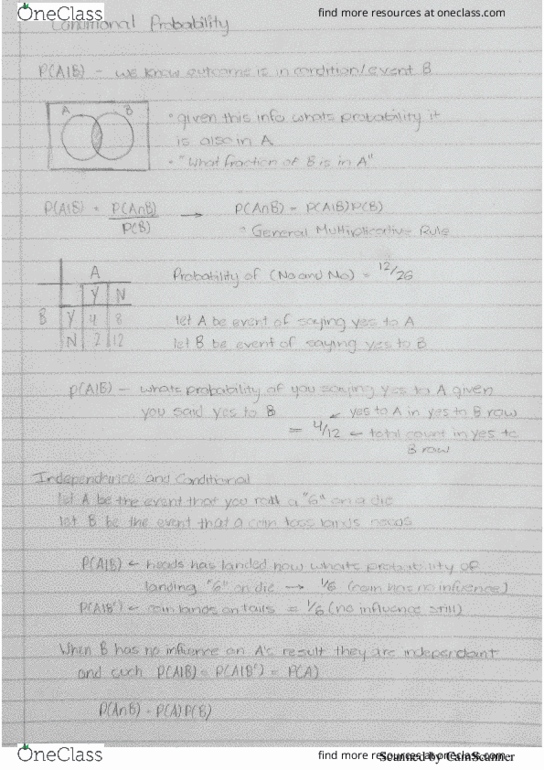 OneClass
find more resources at oneclass.com
Conditional Probability
P(A|B) - we know outcome is in condition/event B
A B
• given this info whats probability it
is also in A
• "What fraction of B is in A"
P(A|B) = P(A∩B) → P(A∩B) = P(A|B)P(B)
P(B)
• General Multiplicative Rule
A
Y N
B Y 4 8
N 2 12
Probability of (No and No) = 12/26
let A be event of saying yes to A
let B be event of saying yes to B
P(A|B) - whats probability of you saying yes to A given
you said yes to B
← yes to A in yes to B row
= 4/12 ← total count in yes to
B row
Independence and Conditional
let A be the event that you roll a "6" on a die
let B be the event that a coin toss lands heads
P(A|B) ← heads has landed now whats probability of
landing "6" on die → 1/6 (coin has no influence)
P(A|B') ← coin lands on tails = 1/6 (no influence still)
When B has no influence on A's result they are independant
and such P(A|B) = P(A|B') = P(A)
P(A∩B) = P(A)P(B)
OneClass
find more resources at oneclass.com
Scanned by CamScanner